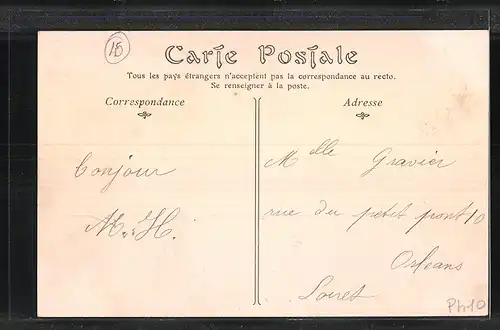 15
Carte Postale
Tous les pays étrangers n'acceptent pas la correspondance au recto.
Se renseigner à la poste.
Correspondance
Adresse
bonjour
M. H.
Melle Gravier
rue du petit pont 10
Orleans
Loiret